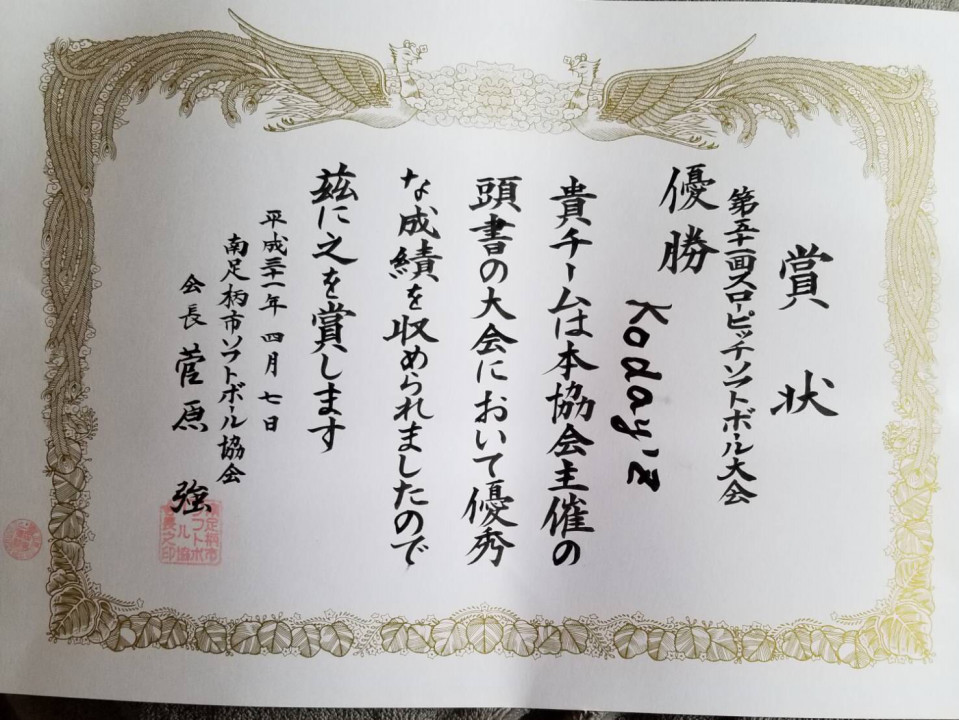 賞状
第五十一回スローピッチソフトボール大会
優勝
Koday'z
貴チームは本協会主催の
頭書の大会において優秀
な成績を収められましたので
茲に之を賞します
平成三十一年四月七日
南足柄市ソフトボール協会
会長 菅原 強
南足柄市
ソフトボ
ール協
会長之印